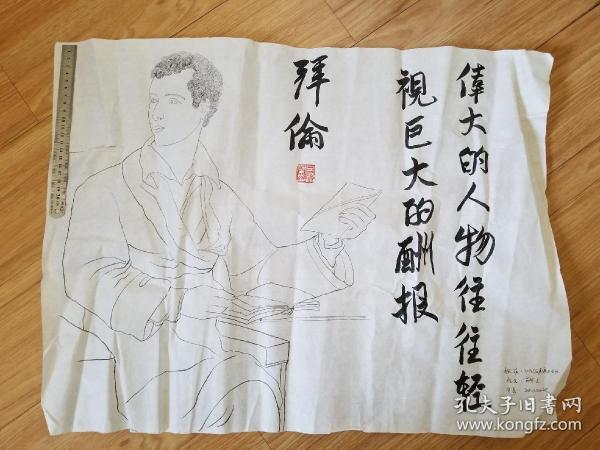 偉大的人物往往轻
視巨大的酬报
拜倫
孔夫子旧书网
www.kongfz.com